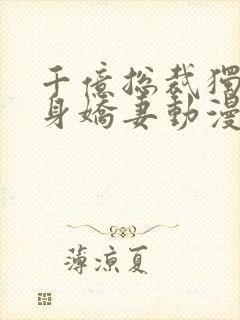 千億總裁獨
身嬌妻動漫
薄涼夏